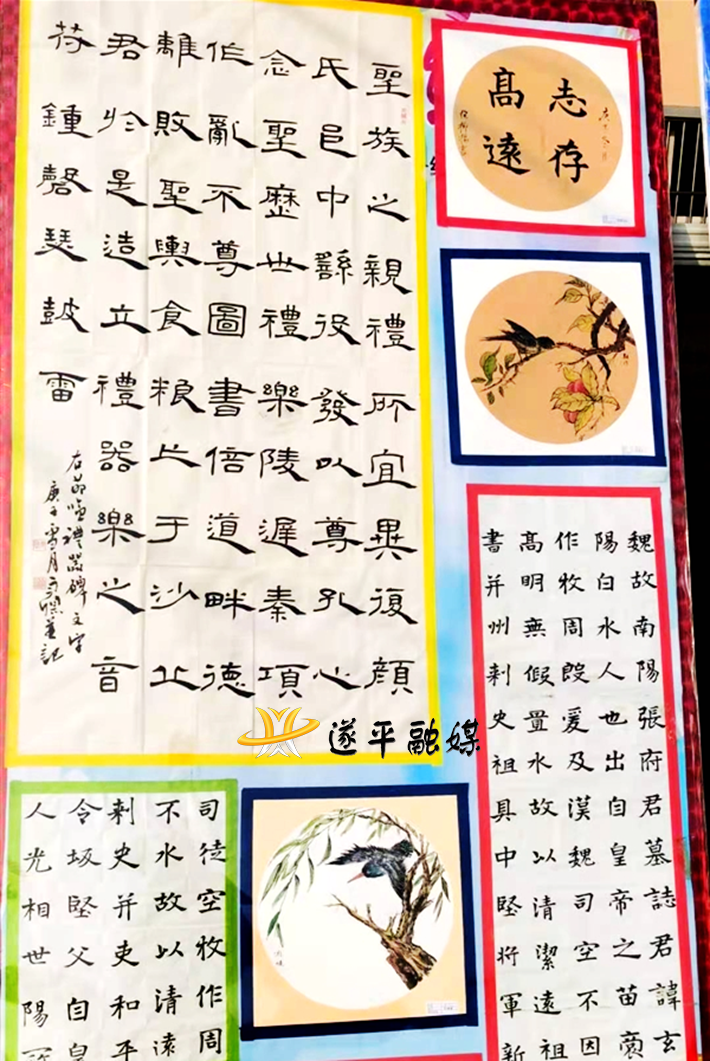 聖族之親禮所宜異復顔
氏邑中繇役發以尊孔心
念聖歷世禮樂陵遲秦項
作亂不尊圖書倍道畔德
離敗聖輿食粮亡于沙丘
君於是造立禮器樂之音
苻鍾磬瑟鼓雷
右節臨禮器碑文字
庚子雪月
志存
高遠
魏故南陽張府君墓誌君諱玄
陽白水人也出自皇帝之苗裔
作牧周殷爰及漢魏司空不因
高明無假置水故以清潔遠祖
書并州刺史祖具中堅將軍新
遂平融媒
司徒空牧作周
不水故以清遠
刺史并吏和平
令坂堅父自皇
人光相世陽